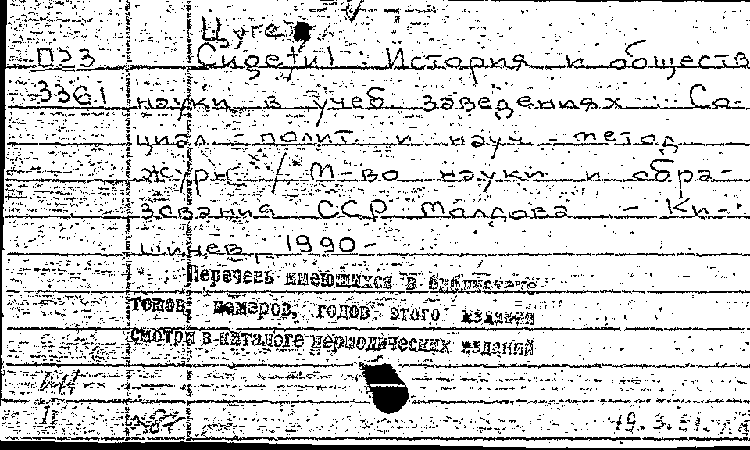 Цуге
П23 Cugetul : История и обществ
3361 науки в учеб. заведениях : Со-
циал. - полит. и науч. - метод.
журн. / М-во науки и обра-
зования ССР Молдова - Ки-
шинев, 1990 -
Перечень имеющихся в библиотеке
томов, номеров, годов этого издания
смотри в каталоге периодических изданий